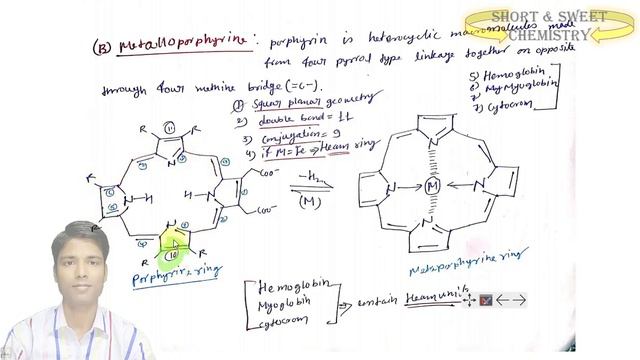 SHORT & SWEET
CHEMISTRY
(B) Metalloporphyrine : porphyrin is heterocyclic macromolecules made
from four pyrrol type linkage together on opposite
through four methine bridge (=C-).
① Squar planar geometry
2) double bond = 11
3) conjugation = 9
4) if M = Fe ⇒ Heam ring
5) Hemoglobin
6) Myoglobin
7) Cytocrom
R R
N
R
R
N-H
H N
N
R R
COO⁻
COO⁻
-H₂
(M)
N
N → M ← N
N
Porphyrine ring
Metaporphyrine ring
Hemoglobin
Myoglobin
cytocrom
⇒ contain Heam units